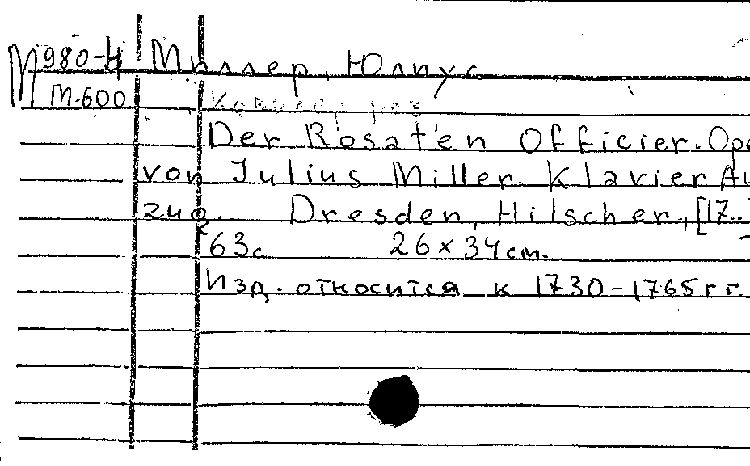 М980-4 Миллер, Юлиус
М-600
Der Rosaten Officier. Ope
von Julius Miller Klavier Au
zug. Dresden, Hilscher, [17..
63с. 26 × 34 см.
Изд. относится к 1730-1765 г г.